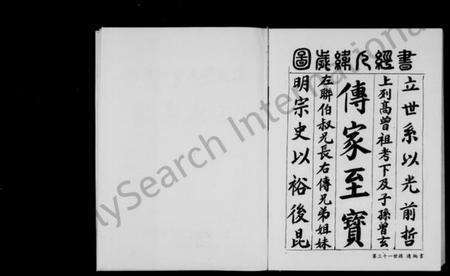 書經人緯歲圖
立世系以光前哲
上列高曾祖考下及子孫曾玄
傳家至寶
左聯伯叔兄長右傳兄弟姐妹
明宗史以裕後昆
第三十一世孫
lySearch International